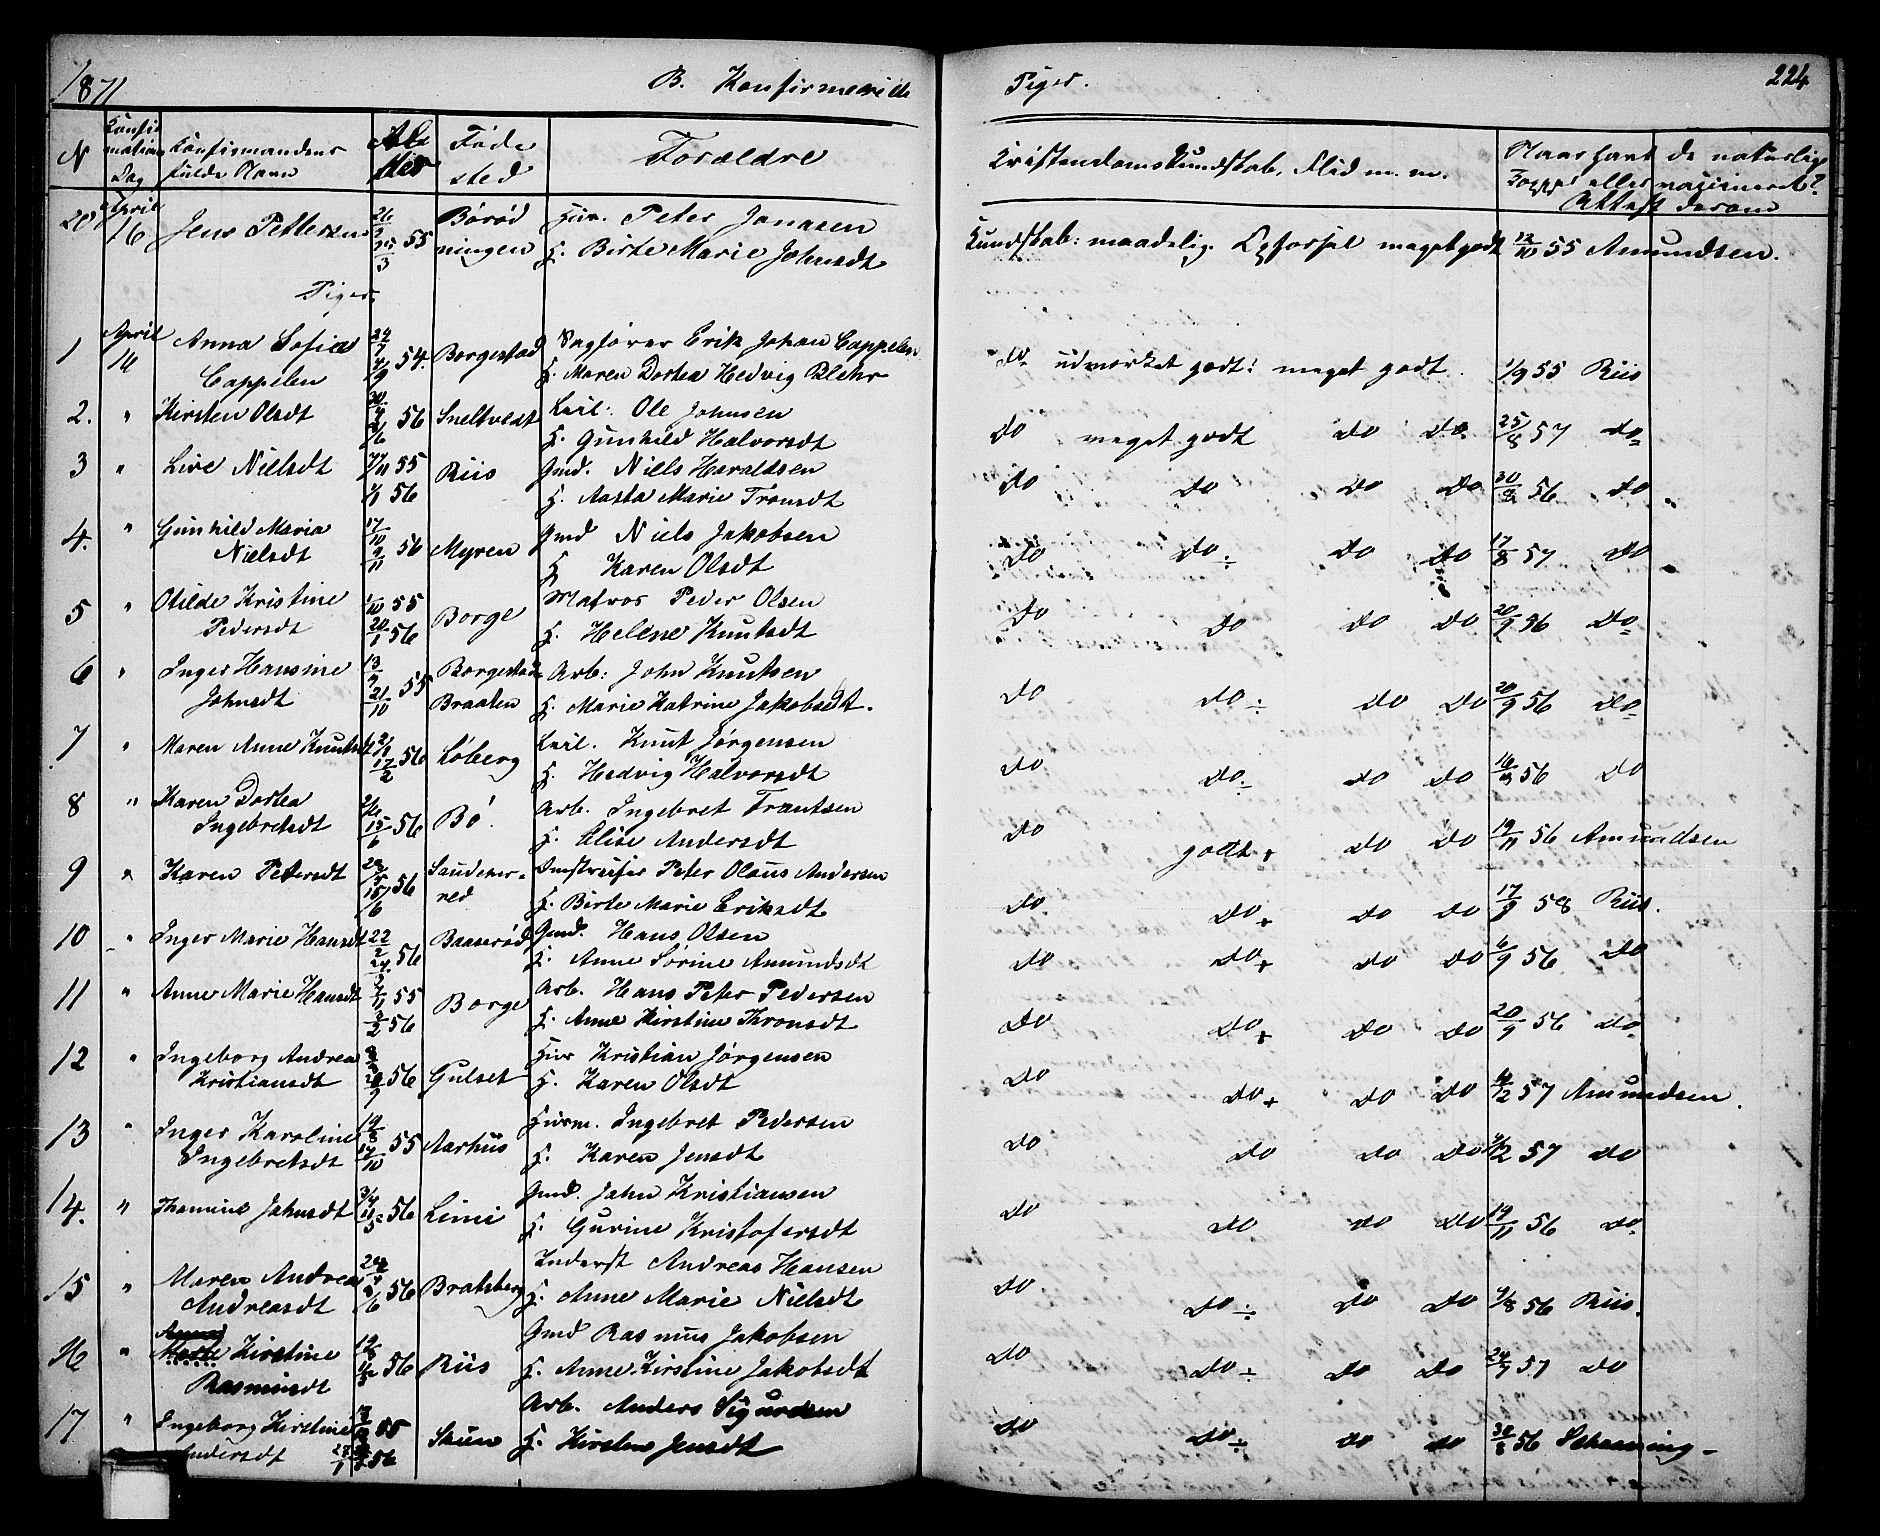 1871 B. Konfirmerede Piger. 224
N Konfirmations Dag Konfirmandens fulde Navn Alder Fødested Forældre Kristendomskundskab, Flid m. m. Naar havt de naturlige Kopper eller vaccineret? Attest derom
20 April 16 Jens Pettersen 55 Børødningen Huv. Peter Jonasen
H. Birte Marie Johnsdt Kundskab: maadelig. Opførsel meget godt 55 Amundsen.
Piger
1 April 16 Anna Sofia Cappelen 54. Borgestad Sagfører Erik Johan Cappelen
H. Maren Dortea Hedvig Blehr do udmærket godt! meget godt. 1/9 55 Riis
2. " Kirsten Olsdt 56 Sneltvedt Leil. Ole Johnsen
H. Gunhild Halvorsdt do meget godt do do 25/8 57 do
3 " Live Nielsdt 55 56 Riis Gmd. Niels Haraldsen
H. Aasta Marie Tronsdt do do do do 56 do
4. " Gunhild Maria Nielsdt 17/10 9/11 56 Myren Gmd Niels Jakobsen
H Karen Olsdt do do ÷ do do 17/8 57 do
5 " Otilde Kristine Pedersdt 1/10 55 20/1 56 Borge Matros Peder Olsen
H. Helene Knutsdt do do do do 20/9 56 do
6 " Inger Hansine Johnsdt 13/9 21/10 55 Borgestad Braaten Arb: John Knutsen
H. Marie Katrine Jakobsdt. do do ÷ do do 20/9 56 do
7 " Maren Anne Knutsdt 17/2 56 Løberg Leil. Knut Jørgensen
H. Hedvig Halvorsdt do do ÷ do do 56 do
8 " Karen Dortea Ingebretsdt 15/6 56 Bø. Arb. Ingebret Frantsen
H. Elise Andersdt do godt + do do 19/11 56 Amundsen
9 " Karen Petersdt 15/6 56 Peter Olaus Andersen
H. Birte Marie Eriksdt do do + do do 17/9 58 Riis.
10 " Inger Marie Hansdt 22/2 56 Baaserød Gmd. Hans Olsen
H. Anne Sørine Amundsdt do do + do do 6/9 56 do
11 " Anne Marie Hansdt 55 3/2 56 Borge Arb. Hans Peter Pedersen
H. Anne Kirstine Thronsdt do do + do do 20/9 56 do
12 " Ingeborg Andrea Kristiansdt 56 Gulset Huv Kristian Jørgensen
H. Karen Olsdt do do + do do 57 Amundsen.
13 " Inger Karoline Ingebretsdt 55 Aarhus Huvm. Ingebret Pedersen
H. Karen Jensdt do do do do 57 do
14. " Thomine Johnsdt 56 Limi Gmd. John Kristiansen
H. Gurine Kristofersdt do do do do 19/11 56 do
15 " Maren Andrea Andreasdt 56 Bratsberg Inderst Andreas Hansen
H. Anne Marie Nielsdt do. do ÷ do do 56 Riis.
16 " Anne Mette Kirstine Rasmusdt 56 Riis Gmd Rasmus Jakobsen
H. Anne Kirstine Jakobsdt do do ÷ do do 24/7 57 do
17 " Ingeborg Kirstine Andersdt 55 56 Skun Arb. Anders Sigurdsen
H. Kirsten Jensdt do do ÷ do do 30/8 56 Schanning